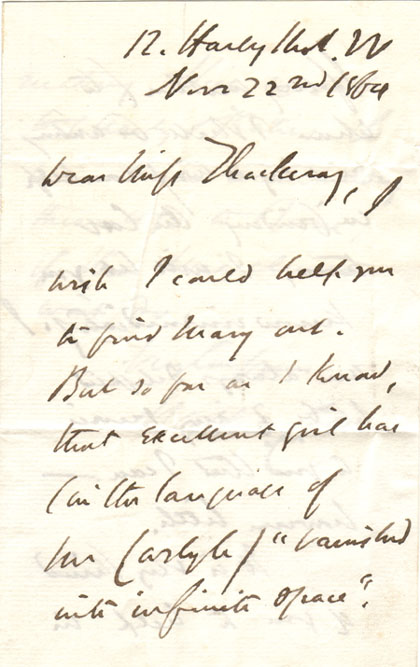 12. Harley Street. W
Nov 22nd 1864
Dear Miss Thackeray, I
wish I could help you
to find Mary out.
But so far as I know,
that excellent girl has
(in the language of
Mr Carlyle) "vanished
into infinite space".